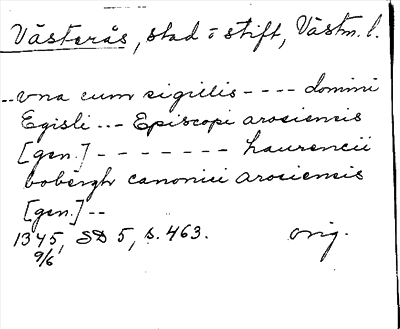 Västerås, stad o stift, Västm. l.
..vna cum sigillis - - - - domini
Egisli ... Episcopi arosiensis
[gen.] - - - - - - - laurencii
bobergh canonici arosiensis
[gen.] --
1345, SD 5, s. 463. orig.
9/6